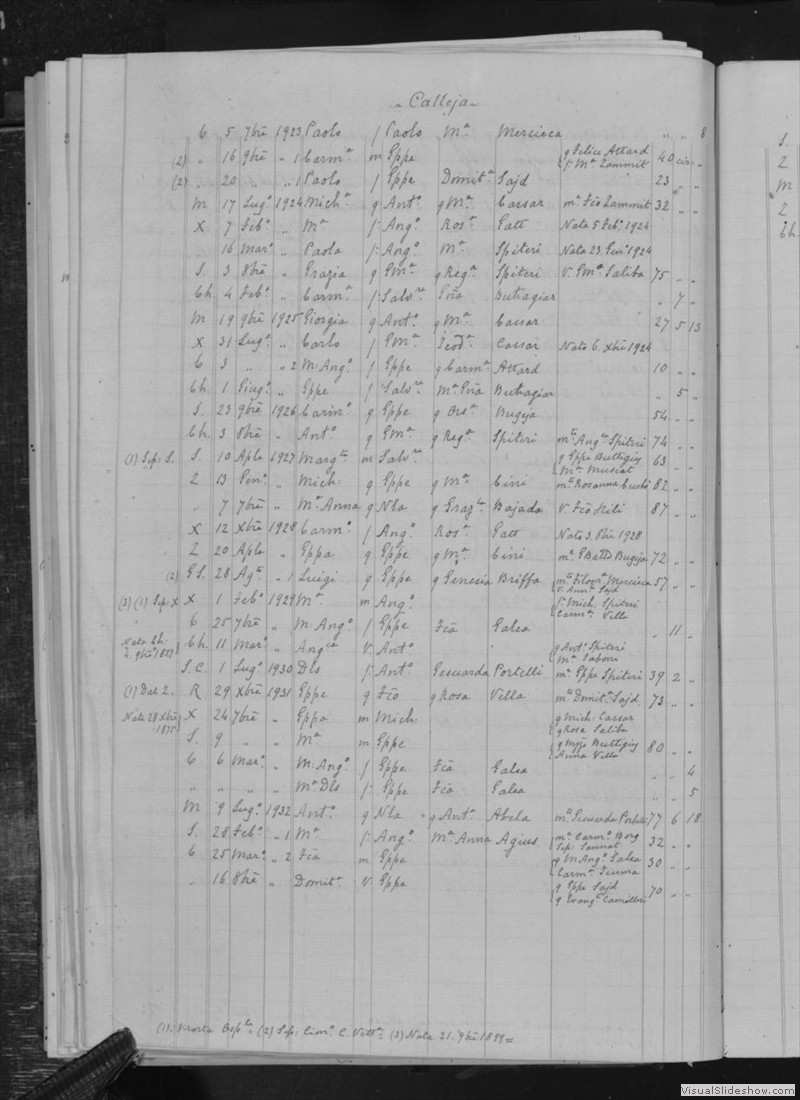 Calleja
6 5 7bre 1923 Paolo f Paolo Ma Mercieca " " 8
(2) " 16 9bre " 1 Carma m Eppe g Felice Attard f Ma Zammit 40 cir: "
(2) " 20 " " 1 Paolo f Eppe Domita Sajd 23 " "
M 17 Lugo 1924 Micha g Anto g Ma Cassar m Fco Zammit 32 " "
X 7 Febo " Ma f Ango Rosa Gatt Nata 5 Febo 1924
16 Maro " Paola f Ango Ma Spiteri Nata 23 Geno 1924
S. 3 8bre " Grazia g GMa g Rega Spiteri V. GMa Saliba 75 " "
Ch. 4 Febo " Carma f Salvre Buhagiar " 7 "
M 19 9bre 1925 Giorgia g Anto g Ma Cassar 27 5 13
X 31 Lugo " Carlo f GMa Teoda Cassar Nato 6 Xbre 1924
6 3 " " 2 M: Ango f Eppe g Carma Attard 10 " "
Ch. 1 Giugo " Eppe f Salvre Ma Buhagiar " 5 "
S. 23 9bre 1926 Carmo g Eppe g Orsa Bugeja 54 " "
Ch. 3 8bre " Anto g GMa g Rega Spiteri mto Anga Spiteri 74 " "
(1) Sep: S. S. 10 Aple 1927 Margta m Salvre g Eppe Buttigieg Ma Muscat 63 " "
Z 13 Geno " Mich: g Eppe g Ma Cini mto Rosanna 82 " "
" 7 7bre " Ma Anna g Nla g Graza Bajada V. Fco 87 " "
X 12 Xbre 1928 Carmo f Ango Rosa Gatt Nato 3. 8bre 1928
Z 20 Aple " Eppa g Eppe g Ma Cini m. GBatta Bugeja 72 " "
(2) G.S. 28 Agto " 1 Luigi g Eppe g Briffa mto Filova Mercieca V. Anna Sajd 57 " "
(3) (1) Sep: X X 1 Febo 1929 Ma m Ango f Mich: Spiteri Carma Vella
6 25 7bre " M: Ango f Eppe Fca Galea " 11 "
Nata Ch: 9bre 1837 Ch. 11 Maro " Angca V Anto g Anto Spiteri Ma
S.C. 1 Lugo 1930 Dls f Anto Gesuarda Portelli m. Eppe Spiteri 39 2 "
(1) Dal Z. R 29 Xbre 1931 Eppe g Fco g Rosa Vella mto Domita Sajd 73 " "
Nata 28 Xbre 1875 X 24 7bre " Eppa m Mich: g Mich: Cassar g Rosa Saliba
S. 9 " " Ma m Eppe Buttigieg Anna Vella 80 " "
6 6 Maro " M: Ango f Eppe Fca Galea " " 4
" " " " Ma Dls f Eppe Fca Galea " " 5
M 9 Lugo 1932 Anto g Nla g Anta Abela mto Gesuarda Portelli 77 6 18
S. 28 Febo " 1 Ma f Ango Ma Anna Agius m. Carmo Borg Sep: Sannat 32 " "
6 25 Maro " 2 Fca m Eppe g M: Ango Galea Carma 30 " "
" 16 8bre " Domita V Eppe g Eppe Sajd g Evanga Camilleri 70 " "
(1) Morta Osple (2) Sep: Cimo C. Vitta (3) Nata 21. 9bre 1899
S.
Z
M
Z
Ch.
VisualSlideshow.com